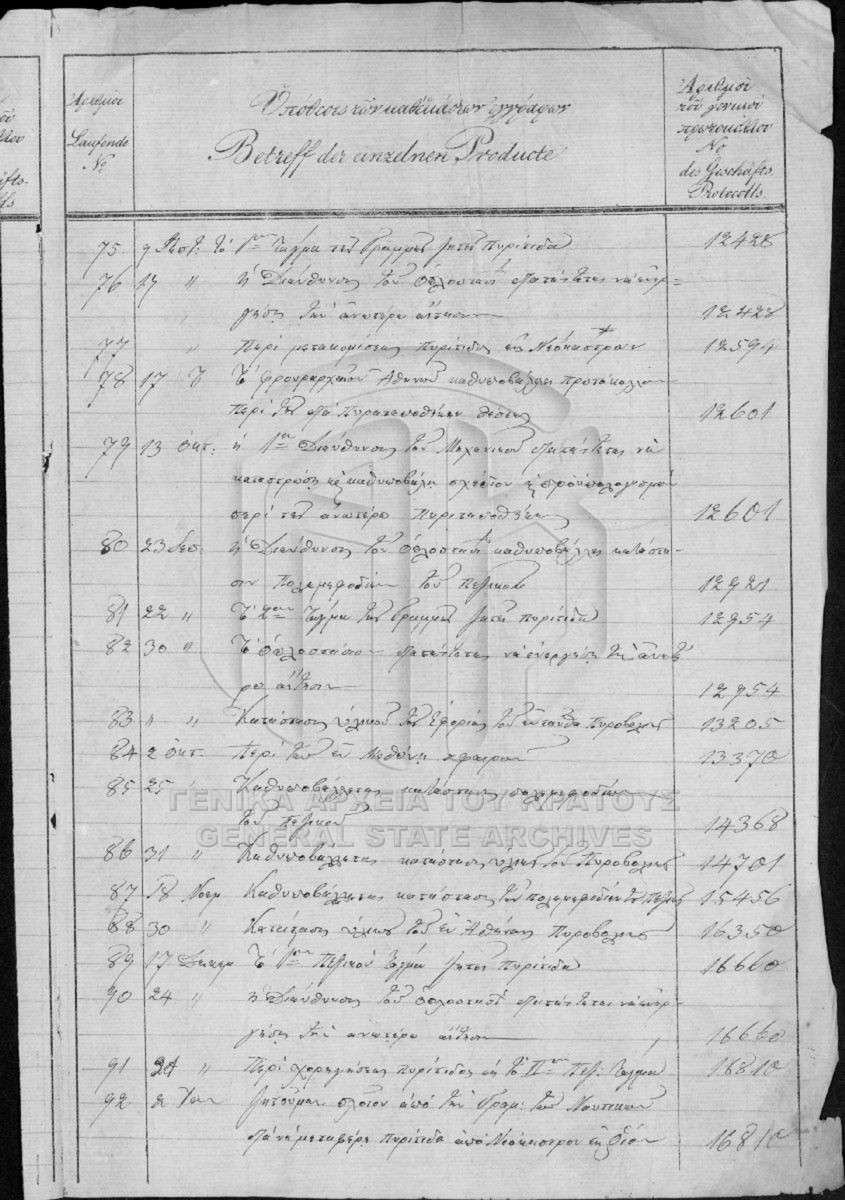 Ἀριθμοὶ
Laufende
No
Ὑπόθεσις τῶν καθεκάστων ἐγγράφων
Betreff der einzelnen Producte
Ἀριθμοὶ
τοῦ γενικοῦ
πρωτοκόλλου
No
des Geschäfts-
Protocolls.
75 9 Σεπτ. Τὸ 1ον Τάγμα τῆς Γραμμῆς ζητεῖ πυρίτιδα 12428
76 17 " ἡ Διεύθυνσις τοῦ Ὁπλοστασ. νὰ ἐνερ-
γήσῃ τὴν ἀνωτέρω αἴτησιν 12428
77 " Περὶ μετακομίσεως πυρίτιδος εἰς Νεόκαστρον 12594
78 17 " Τὸ φρουραρχεῖον Ἀθηνῶν καθυποβάλλει πρωτόκολλον
περὶ τῆς θέσεως 12601
79 13 Ὀκτ. ἡ 1η Διεύθυνσις τοῦ Μηχανικοῦ διατάττεται νὰ
καταστρώσῃ καὶ καθυποβάλῃ σχέδιον προϋπολογισμοῦ
περὶ τῆς ἀνωτέρω πυριταποθήκης 12601
80 23 Σεπ. ἡ Διεύθυνσις τοῦ Ὁπλοστασ. καθυποβάλλει κατάστα-
σιν πολεμεφοδίων τοῦ πεζικοῦ 12921
81 22 " Τὸ 2ον Τάγμα τῆς Γραμμῆς ζητεῖ πυρίτιδα 12954
82 30 " Τὸ ὁπλοστάσιον διατάττεται νὰ ἐνεργήσῃ τὴν ἀνωτέ
ρω αἴτησιν 12954
83 " " Κατάστασις ὑλικοῦ τῆς Ἐφορίας τοῦ ἐνταῦθα Πυροβολικ. 13205
84 2 Ὀκτ. Περὶ τῶν ἐν Μεθώνῃ σφαιρῶν 13370
85 25 " Καθυποβάλλεται κατάστασις πολεμεφοδίων
τοῦ πεζικοῦ 14368
86 31 " Καθυποβάλλεται κατάστασις ὕλης τοῦ Πυροβολικ. 14701
87 18 Νοεμ Καθυποβάλλεται κατάστασις τῶν πολεμεφοδίων τοῦ Πεζικ. 15456
88 30 " Κατάστασις ὑλικοῦ τοῦ ἐν Ἀθήναις Πυροβολικ. 16350
89 17 Δεκεμ Τὸ 1ον Πεζικοῦ Τάγμα ζητεῖ πυρίτιδα 16660
90 24 " ἡ Διεύθυνσις τοῦ ὁπλοστασ. διατάττεται νὰ ἐνερ-
γήσῃ τὴν ἀνωτέρω αἴτησιν 16660
91 " Περὶ χορηγήσεως πυρίτιδος εἰς τὸ IIον Πεζ. Τάγμα 16810
92 2 Ἰαν ζητοῦμεν πλοῖον ἀπὸ τὴν Γραμ. τῶν Ναυτικῶν
διὰ νὰ μεταφέρῃ πυρίτιδα ἀπὸ Νεόκαστρον 16810
ΓΕΝΙΚΑ ΑΡΧΕΙΑ ΤΟΥ ΚΡΑΤΟΥΣ
GENERAL STATE ARCHIVES